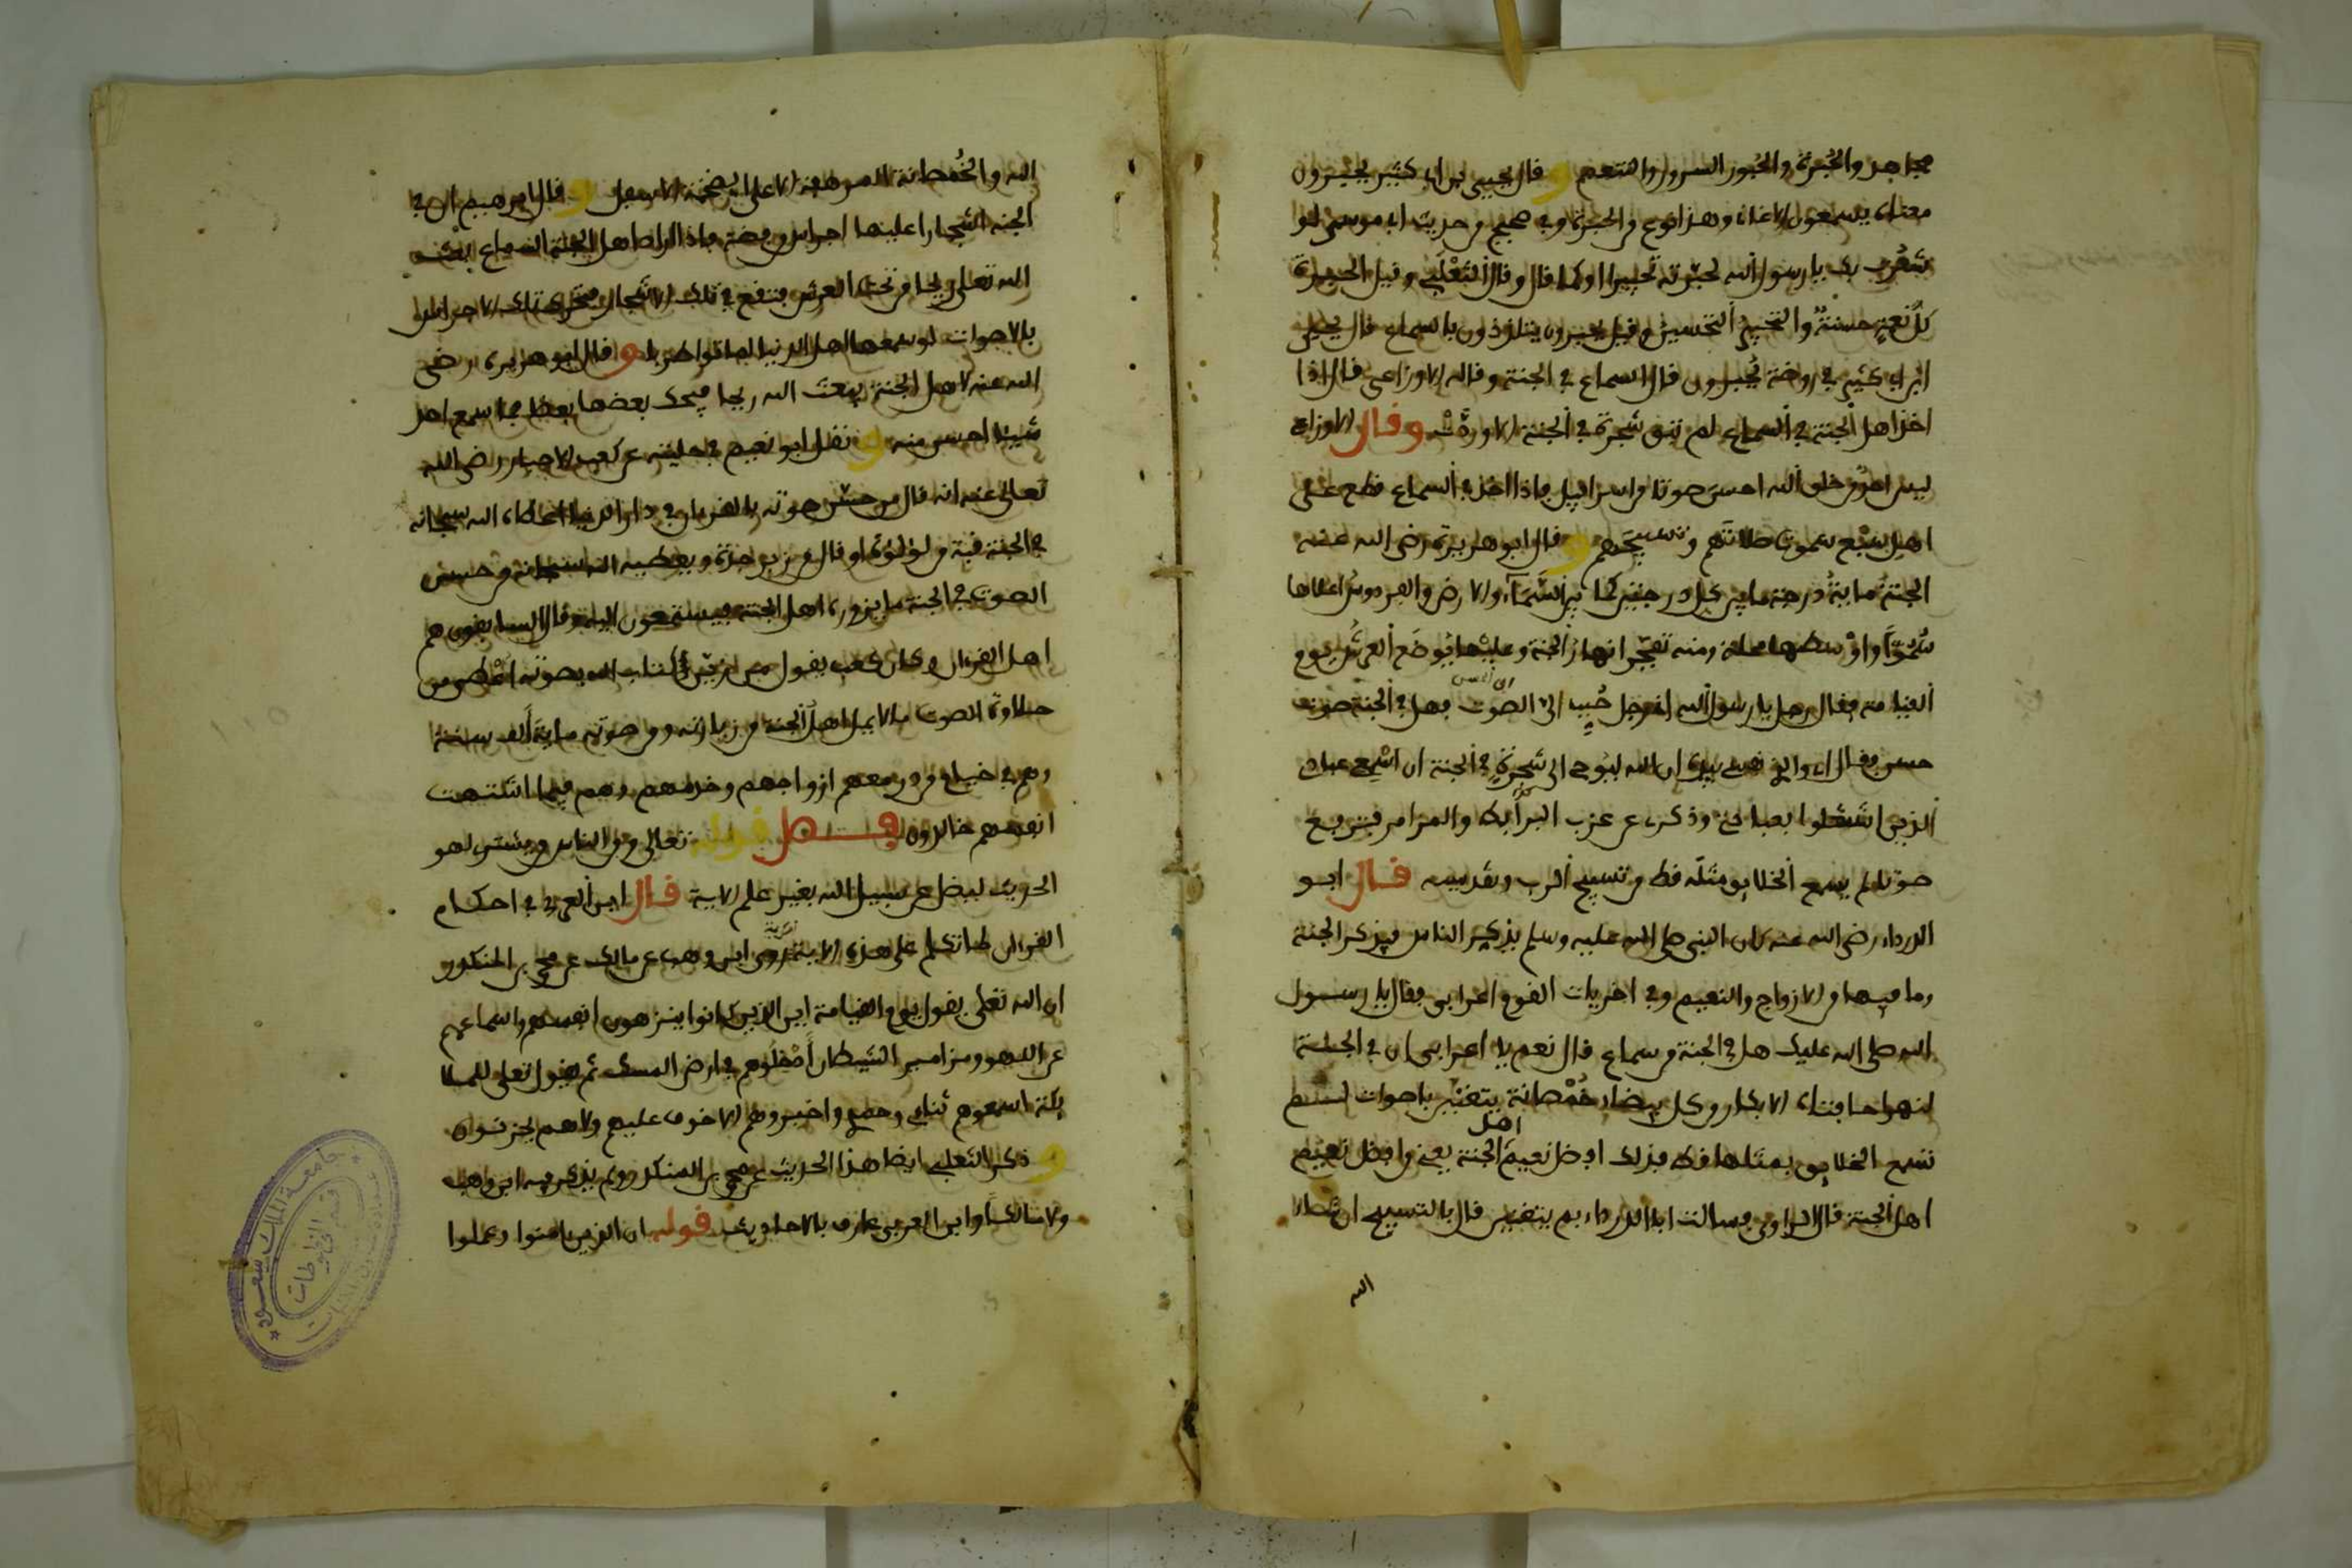 مجاهد والحبرة والحبور السرور والتنعم و قال يحيى بن ابي كثير يحبرون
معناه يسمعون الاغاني وهذا نوع من الحبرة وفي صحيح من حديث ابي موسى لو
شعرت بك يا رسول الله لحبرته تحبيرا او كما قال وقال الثعلبي وقيل الحبرة
كل نعمة حسنة والتحبير التحسين وقيل يحبرون يتلذذون بالسماع قال يحيى
ابن ابي كثير في روضة يحبرون قال السماع في الجنة وقاله الاوزاعي قال اذا
اخذ اهل الجنة في السماع لم تبق شجرة في الجنة الا وردت وقال الاوزاعي
ليس احد من خلق الله احسن صوتا من اسرافيل فاذا اخذ في السماع قطع على
اهل سبع سموت صلاتهم وتسبيحهم و قال ابو هريرة رضي الله عنه
الجنة ماية درجة ما بين كل درجتين كما بين السماء والارض والفردوس اعلاها
سموا واوسطها محلة ومنه تفجر انهار الجنة وعليها يوضع العرش يوم
القيامة فقال رجل يا رسول الله اني رجل حبب الي الصوت فهل في الجنة صوت
حسن فقال اي والذي نفسي بيده ان الله ليوحي الى شجرة في الجنة ان اسمعي عبادي
الذين اشتغلوا بعبادتي وذكري عن عزف البرابط والمزامر فترفع
صوتا لم يسمع الخلايق مثله قط من تسبيح الرب وتقديسه قال ابو
الدرداء رضي الله عنه كان النبي صلى الله عليه وسلم يذكر الناس فيذكر الجنة
وما فيها من الازواج والنعيم وفي اخريات القوم اعرابي فقال يا رسول
الله صلى الله عليك هل في الجنة من سماع قال نعم يا اعرابي ان في الجنة
لنهرا حافتاه الابكار من كل بيضاء خمصانة يتغنين باصوات لم
تسمع الخلايق بمثلها قط فذلك افضل نعيم اهل الجنة يعني افضل نعيم
اهل الجنة قال الراوي فسالت ابا الدرداء بم يتغنين قال بالتسبيح ان شاء
الله
الله والخمصانة المرهفة الاعلى الضخمة الاسفل و قال ابرهيم ان في
الجنة اشجارا عليها اجراس من فضة فاذا اراد اهل الجنة السماع بعث
الله تعلى ريحا من تحت العرش فتقع في تلك الاشجار فتحرك تلك الاجراس
بالاصوات لو سمعها اهل الدنيا لماتوا طربا و قال ابو هريرة رضي
الله عنه لاهل الجنة يبعث الله ريحا فيحك بعضها بعضا فما سمع احد
شيئا احسن منه و نقل ابو نعيم في حليته عن كعب الاحبار رضي الله
تعالى عنه انه قال من حسن صوته بالقرءان في دار الدنيا اعطاه الله سبحانه
في الجنة قبة من لؤلؤة او قال من زبرجدة ويعطيه الله سبحانه من حسن
الصوت في الجنة ما يزوره اهل الجنة فيستمعون اليه وقال السابقون هم
اهل القرءان وكان كعب يقول من زين كتاب الله بصوته اعطي من
حلاوة الصوت ما لا يمل اهل الجنة من زيارته ومن صوته ماية الف سنة
وهم في خيام من در معهم ازواجهم وخدمهم وهم فيما اشتهت
انفسهم خالدون فصل قوله تعالى ومن الناس من يشتري لهو
الحديث ليضل عن سبيل الله بغير علم الاية قال ابن العربي في احكام
القرءان لما تكلم على هذه الاية روى ابن وهب عن مالك عن محمد بن المنكدر
ان الله تعلى يقول يوم القيامة اين الذين كانوا ينزهون انفسهم واسماعهم
عن اللهو ومزامير الشيطان ادخلوهم في ارض المسك ثم يقول تعلى للملا
يكة اسمعوهم ثنائي وحمدي واخبروهم الا خوف عليهم ولا هم يحزنون
و ذكر الثعلبي ايضا هذا الحديث عن محمد بن المنكدر ولم يذكر فيه ابن وهب
ولا مالكا وابن العربي عارف بالاحاديث قوله ان الذين ءامنوا وعملوا
جامعة الملك سعود
قسم المخطوطات